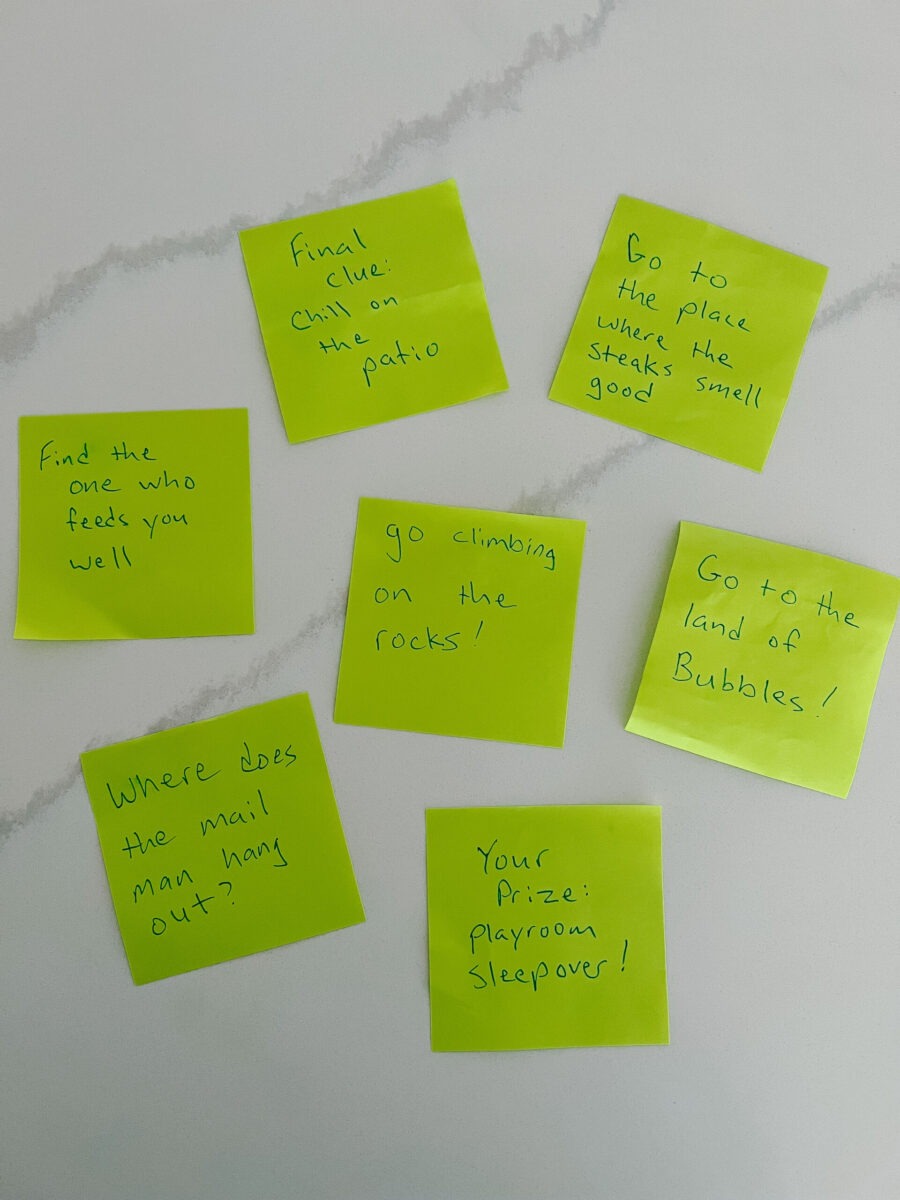 Final
clue:
Chill on
the
patio
Go to
the place
where the
steaks smell
good
Find the
one who
feeds you
well
go climbing
on the
rocks!
Go to the
land of
Bubbles!
Where does
the mail
man hang
out?
Your
Prize:
playroom
sleepover!